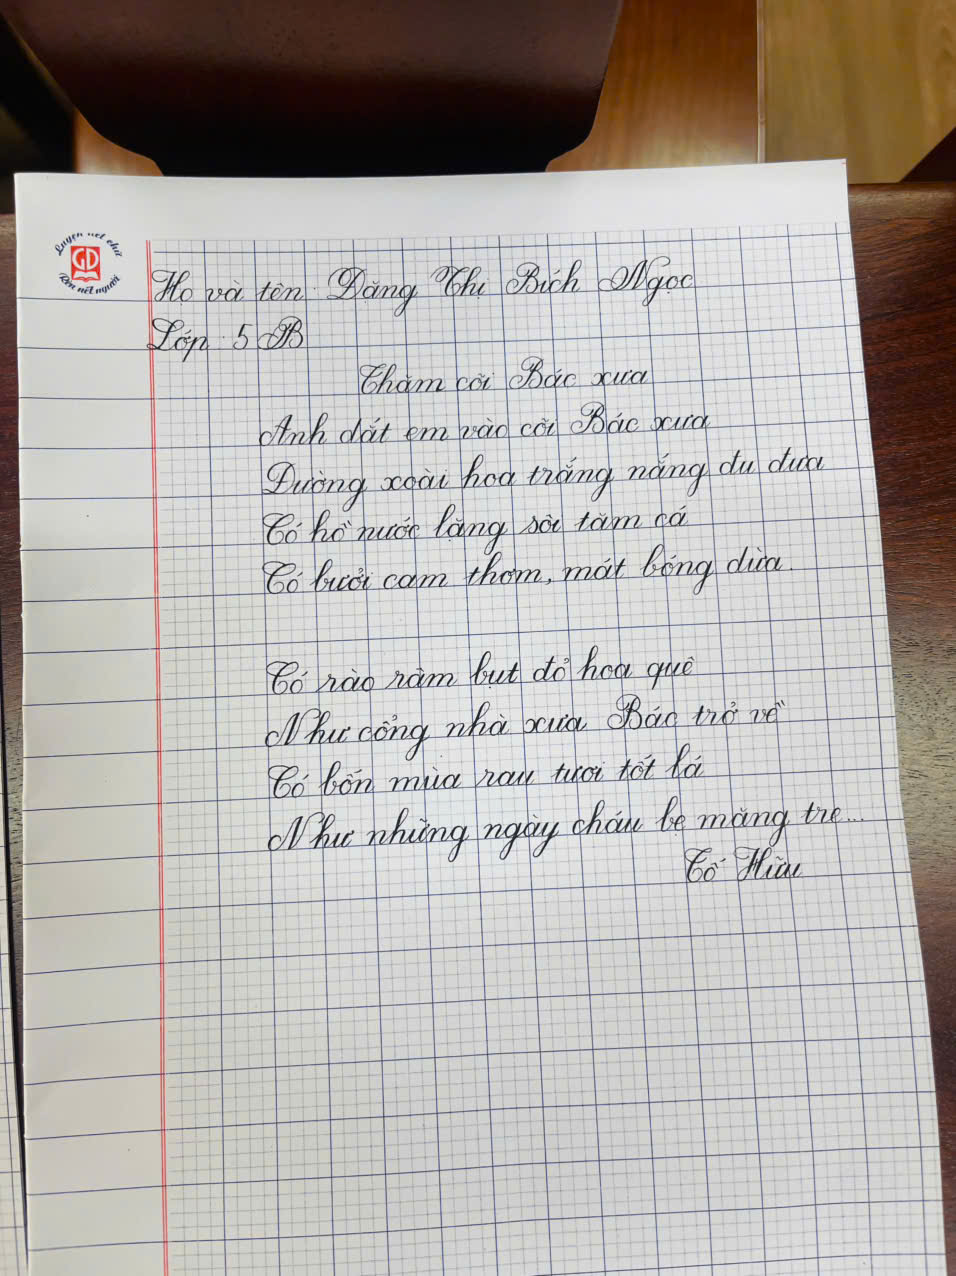 Luyện nét chữ
GD
Rèn nết người
Họ và tên: Đặng Thị Bích Ngọc
Lớp: 5B
Thăm cõi Bác xưa
Anh dắt em vào cõi Bác xưa
Đường xoài hoa trắng nắng đu đưa
Có hồ nước lặng sôi tăm cá
Có bưởi cam thơm, mát bóng dừa.
Có rào râm bụt đỏ hoa quê
Như cổng nhà xưa Bác trở về
Có bốn mùa rau tươi tốt lá
Như những ngày cháu bẹ măng tre...
Tố Hữu